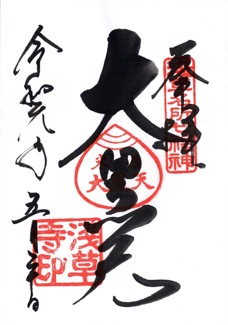 奉拝
浅草名所七福神
大黒天
浅草寺印
令和元年
五月 日